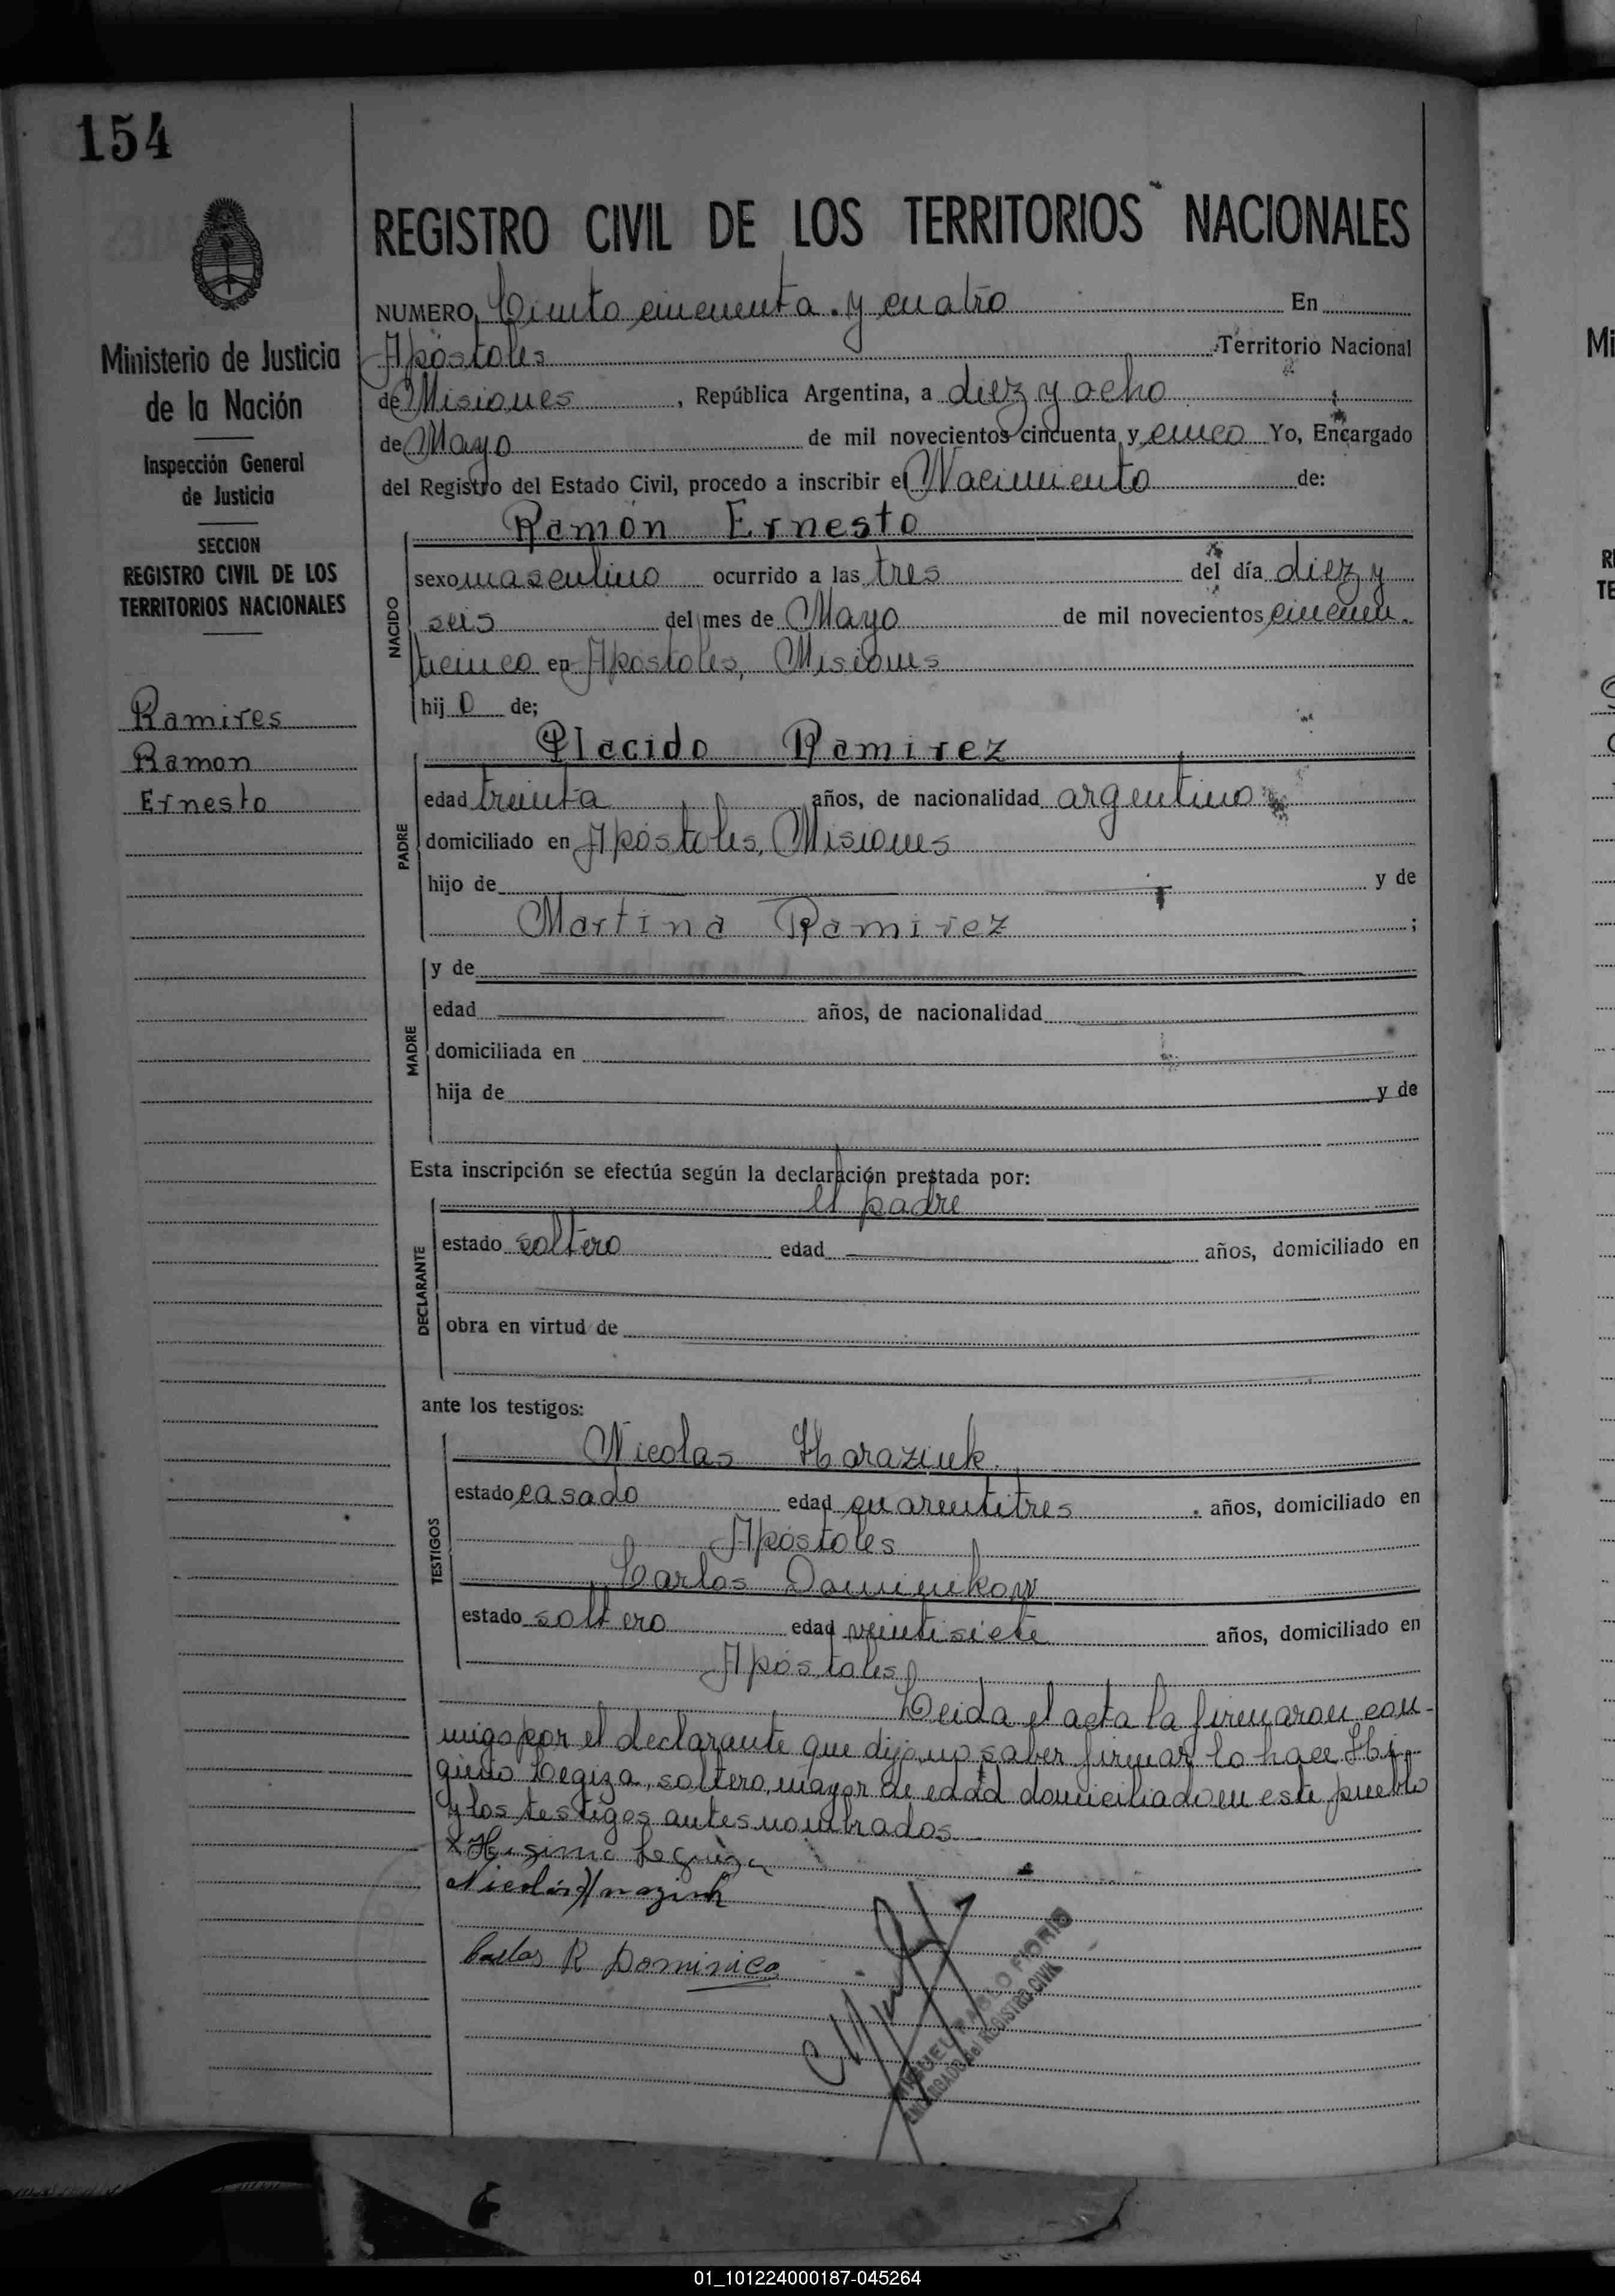 154
REGISTRO CIVIL DE LOS TERRITORIOS NACIONALES
Ministerio de Justicia
de la Nación
Inspección General
de Justicia
SECCION
REGISTRO CIVIL DE LOS
TERRITORIOS NACIONALES
Ramires
Ramon
Ernesto
NUMERO Ciento cincuenta y cuatro En
Apóstoles Territorio Nacional
de Misiones, República Argentina, a diez y ocho
de Mayo de mil novecientos cincuenta y cinco Yo, Encargado
del Registro del Estado Civil, procedo a inscribir el Nacimiento de:
NACIDO
Ramón Ernesto
sexo masculino ocurrido a las tres del día diez y
seis del mes de Mayo de mil novecientos cincuen.
ticinco en Apóstoles, Misiones
hijo de;
PADRE
Placido Ramirez
edad treinta años, de nacionalidad argentino
domiciliado en Apóstoles, Misiones
hijo de y de
Martina Ramirez ;
MADRE
y de
edad años, de nacionalidad
domiciliada en
hija de y de
Esta inscripción se efectúa según la declaración prestada por:
DECLARANTE
el padre
estado soltero edad años, domiciliado en
obra en virtud de
ante los testigos:
TESTIGOS
Nicolas Haraziuk.
estado casado edad cuarentitres años, domiciliado en
Apóstoles
Carlos Dominikow
estado soltero edad veintisiete años, domiciliado en
Apóstoles
Leida el acta la firmaron con-
migo por el declarante que dijo no saber firmar lo hace Hi-
ginio Legiza, soltero, mayor de edad domiciliado en este pueblo
y los testigos antes nombrados
Nicolás
Carlos R Dominico
MIGUEL PABLO FIORIO
ENCARGADO del REGISTRO CIVIL
01_101224000187-045264